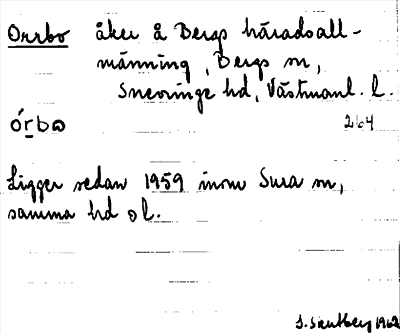 Orrbo åker å Bergs häradsall-
männing, Bergs sn,
Snevringe hd, Västmanl. l.
órbɷ 264
Ligger sedan 1959 inom Sura sn,
samma hd o l.
1962